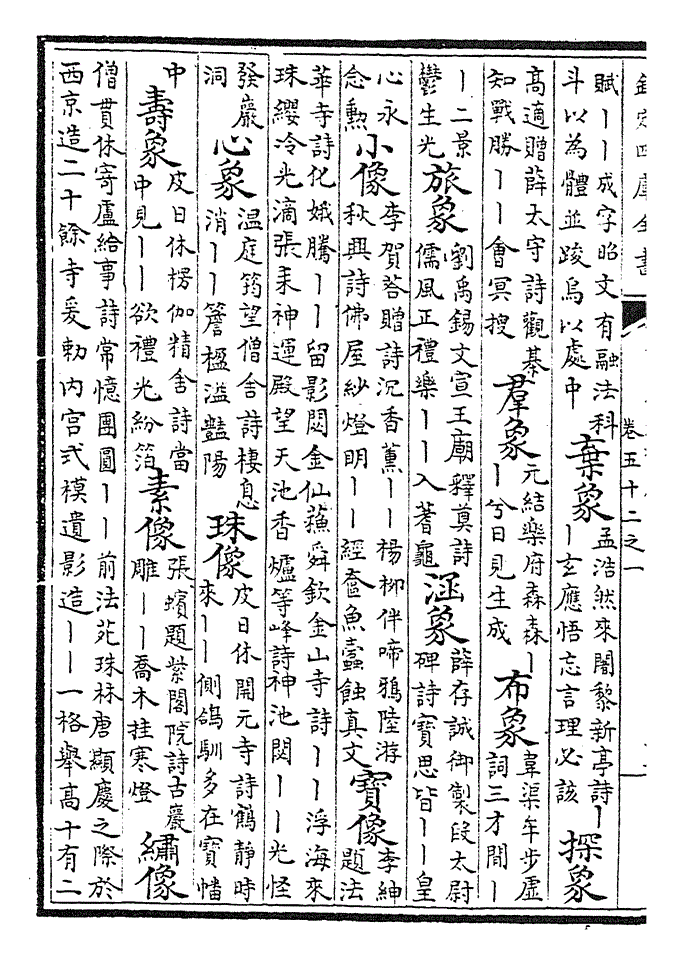 欽定四庫全書
卷五十二之一
賦丨丨成字昭文有融法科
斗以為體並踆烏以處中
棄象
孟浩然來闍黎新亭詩丨
丨玄應悟忘言理必該
探象
高適贈薛太守詩觀棊
知戰勝丨丨會冥搜
羣象
元結樂府森森丨
丨兮日見生成
布象
韋渠牟步虛
詞三才間丨
丨二景
鬱生光
旅象
劉禹錫文宣王廟釋奠詩
儒風正禮樂丨丨入蓍龜
涵象
薛存誠御製段太尉
碑詩寶思皆丨丨皇
心永
念勲
小像
李賀荅贈詩沉香薰丨丨楊柳伴啼鴉陸游
秋興詩佛屋紗燈明丨丨經奩魚蠹蝕真文
寶像
李紳
題法
華寺詩化娥騰丨丨留影閟金仙蘇舜欽金山寺詩丨丨浮海來
珠纓冷光滴張耒神運殿望天池香爐等峰詩神池閟丨丨光怪
發巖
洞
心象
溫庭筠望僧舍詩棲息
消丨丨簷楹溢豔陽
珠像
皮日休開元寺詩鶴静時
來丨丨側鴿馴多在寶幡
中
壽象
皮日休楞伽精舍詩當
中見丨丨欲禮光紛箔
素像
張蠙題紫閣院詩古巖
雕丨丨喬木挂寒燈
繡像
僧貫休寄盧給事詩常憶團圓丨丨前法苑珠林唐顯慶之際於
西京造二十餘寺爰勅内宫式模遺影造丨丨一格舉高十有二